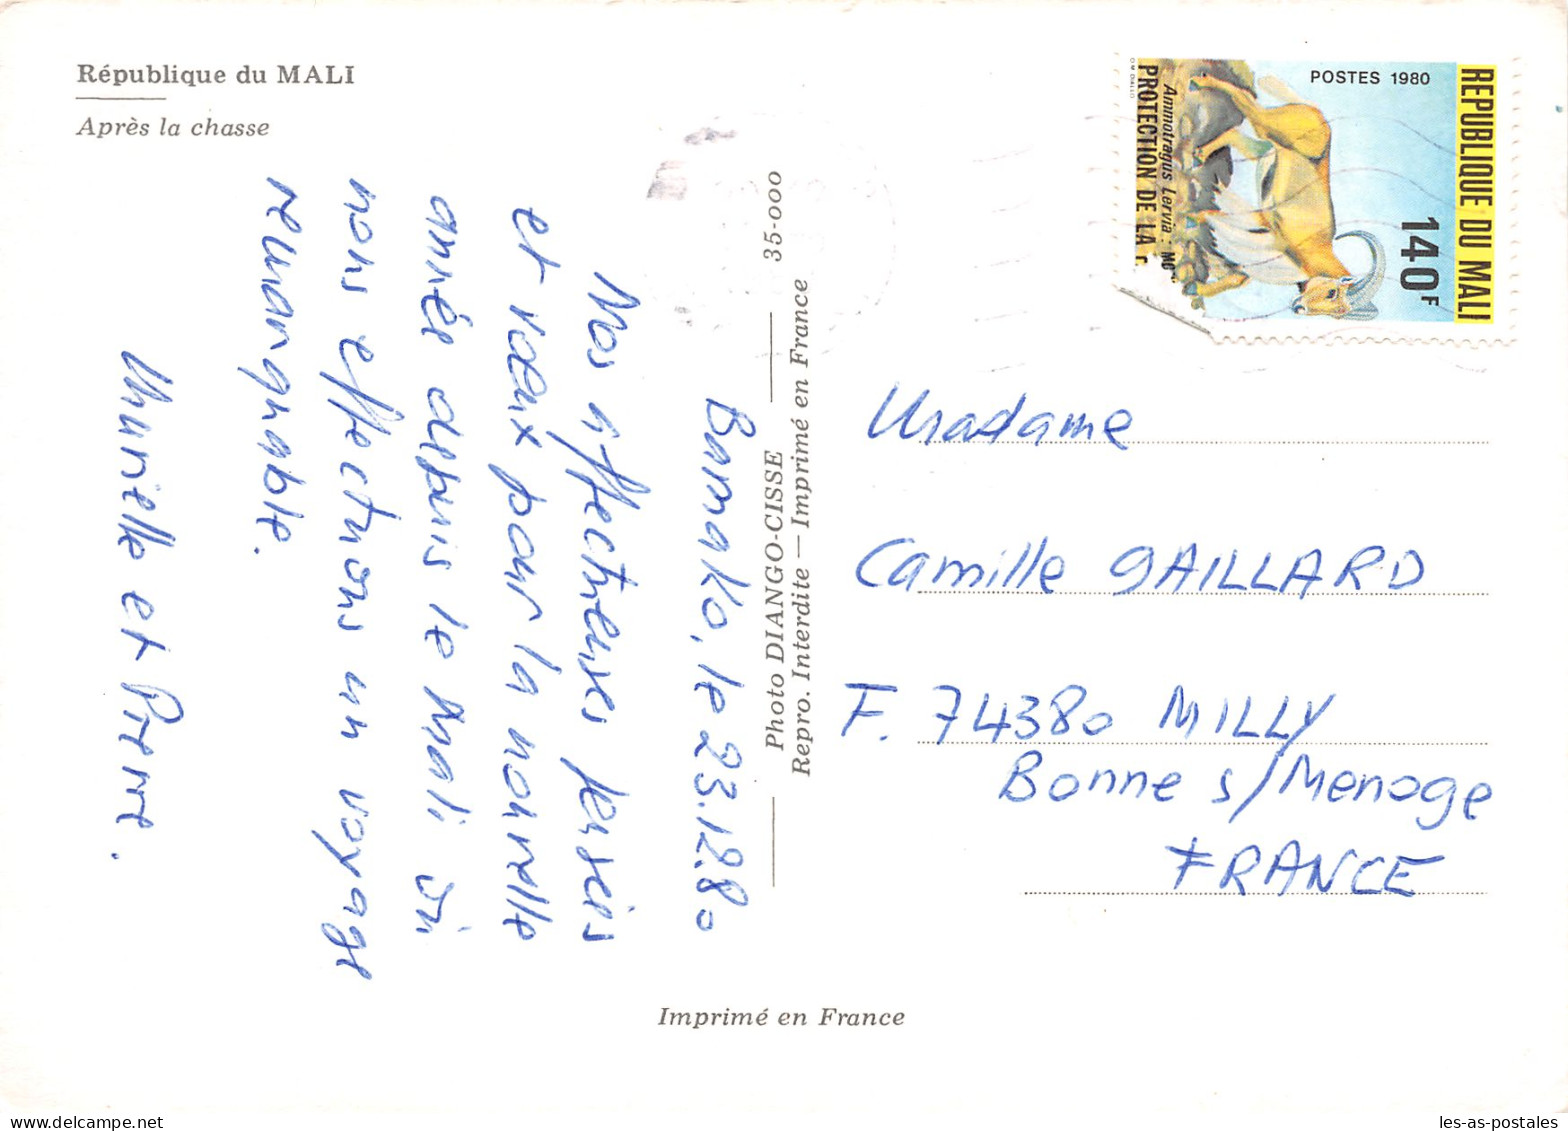 République du MALI
Après la chasse
Bamako, le 23.12.80
Nos affectueuses pensées
et vœux pour la nouvelle
année depuis le Mali où
nous effectuons un voyage
remarquable.
Murielle et Pierre.
Photo DIANGO-CISSE 35-000
Repro. Interdite — Imprimé en France
Imprimé en France
REPUBLIQUE DU MALI
140F
POSTES 1980
Ammotragus Lervia :
PROTECTION DE LA
Madame
Camille GAILLARD
F. 74380 MILLY
Bonne s/Menoge
FRANCE
delcampe.net
les-as-postales